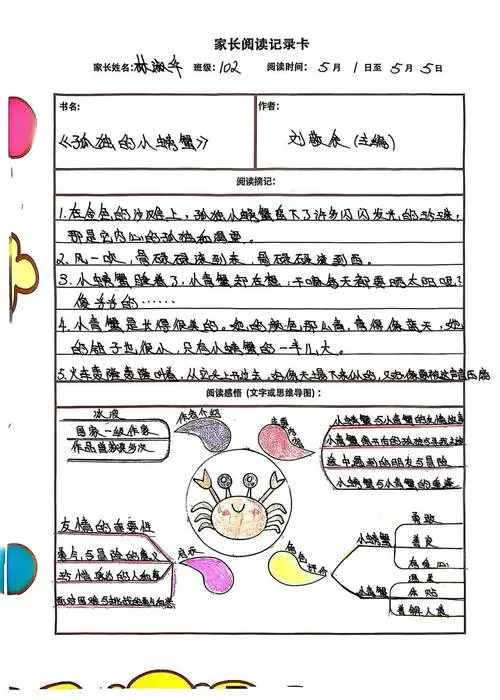 家长阅读记录卡
家长姓名: 林淑华 班级: 102 阅读时间: 5 月 1 日至 5 月 5 日
书名:
《孤独的小螃蟹》
作者:
刘敬余(主编)
阅读摘记:
1.在金色的沙滩上，孤独小螃蟹留下了许多闪闪发光的珍珠，
那是它内心的孤独和渴望。
2.风一吹，骨碌碌滚到东，骨碌碌滚到西。
3.小螃蟹睡着了，小青蟹却在想：干嘛每天都要晒太阳呢？
像爷爷的……
4.小青蟹是长得很美的。她的颜色那么青，青得像蓝天，她
的钳子也很小，只有小螃蟹的一半儿大。
5.火车轰隆轰隆叫着，从它头上开过去，
阅读感悟 (文字或思维导图):
冰波
国家一级作家
作品曾获奖多次
作者介绍
主要内容
小螃蟹与小青蟹的友情故事
小青蟹离开后的孤独与寻找之旅
途中遇到的朋友与冒险
小螃蟹与小青蟹的重逢
友情的重要性
勇气与冒险的意义
珍惜身边的人和事
面对困难与挑战的勇气和
启示
角色评价
小螃蟹
勇敢
善良
有爱心
小青蟹
温柔
体贴
善解人意